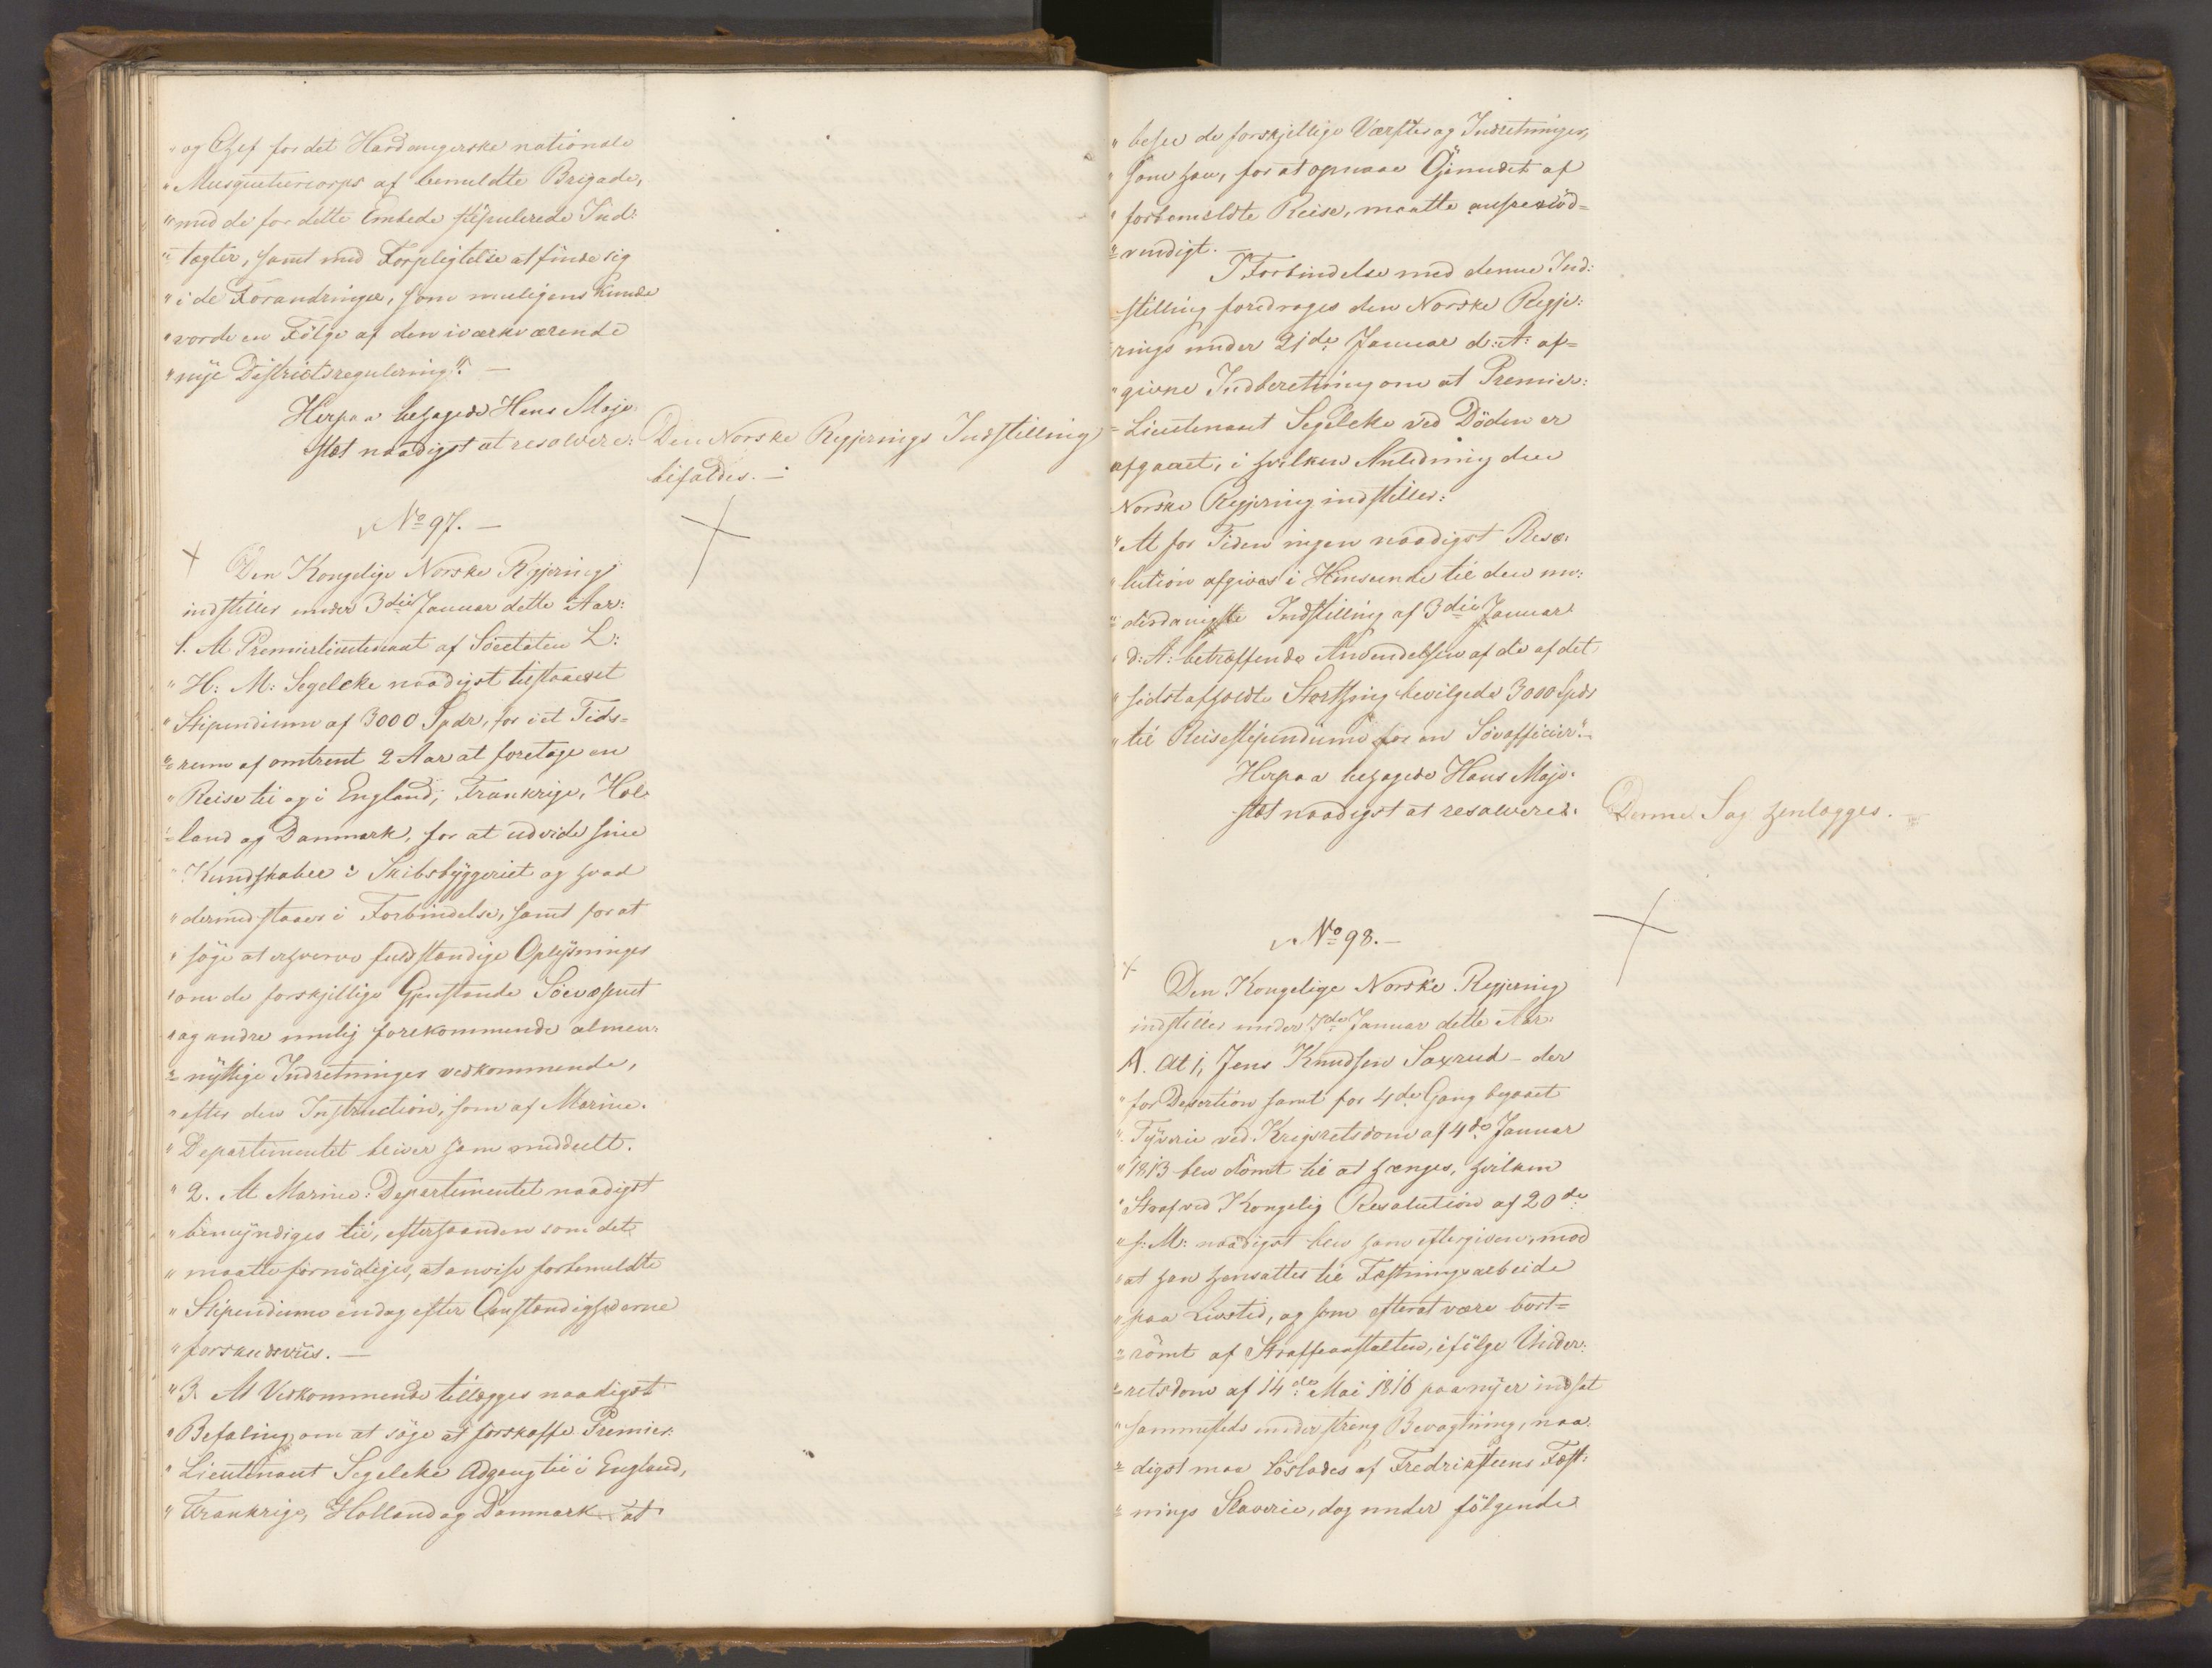 "og Chef for det Hardangerske nationale
"Musqueteercorps af bemeldte Brigade,
"med de for dette Embede stipulerede Ind=
"tægter, samt med Forpligtelse at finde sig
"i de Forandringer, som muligens kunde
"vorde en Følge af den iværkværende
"nye Districtsregulering". —
Herpaa behagede Hans Maje-
stæt naadigst at resolvere: Den Norske Regjerings Indstilling
bifaldes. —
No 97. —
Den Kongelige Norske Regjering
indstiller under 3die Januar dette Aar:
1. At Premierlieutenant af Söeetaten L:
"H: M: Segelcke naadigst tilstaaes et
"Stipendium af 3000 Spdr, for i et Tids=
"rum af omtrent 2 Aar at foretage en
"Reise til og i England, Frankrige, Hol-
"land og Danmark, for at udvide sine
"Kundskaber i Skibsbyggeriet og hvad
"dermed staaer i Forbindelse, samt for at
"søge at erhverve fuldstændige Oplysninger
"om de forskjellige Gjenstande Söevæsenet
"og andre mulig forekommende almeen-
"nyttige Indretninger vedkommende,
"efter den Instruction, som af Marine-
"Departementet bliver ham meddeelt.
"2. At Marine-Departementet naadigst
"bemyndiges til, efterhaanden som det
"maatte fornødiges, at anvise forbemeldte
"Stipendium endog efter Omstændighederne
"forskudsviis. —
"3. At Vedkommende tillægges naadigst
"Befaling om at søge at forskaffe Premier-
"Lieutenant Segelcke Adgang til i England,
"Frankrige, Holland og Danmark at
"besee de forskjellige Værfter og Indretninger,
"som han, for at opnaae Øiemedet af
"forbemeldte Reise, maatte ansee nød=
"vendigt. —
I Forbindelse med denne Ind-
stilling foredroges den Norske Regje-
rings under 21de Januar d: A: af=
givne Indberetning om at Premier-
Lieutenant Segelcke ved Döden er
afgaaet, i hvilken Anledning den
Norske Regjering indstiller:
"At for Tiden ingen naadigst Reso-
"lution afgives i Henseende til den un-
"derdanigste Indstilling af 3die Januar
"d: A: betræffende Anvendelsen af de af det
"sidst afholdte Storthing bevilgede 3000 Spdr
"til Reisestipendium for en Söeofficier". —
Herpaa behagede Hans Maje-
stæt naadigst at resolvere: Denne Sag henlægges. —
No 98. —
Den Kongelige Norske Regjering
indstiller under 7de Januar dette Aar:
A. At 1, Jens Knudsen Saxrud - der
"for Desertion samt for 4de Gang begaaet
"Tyverie ved Krigsretsdom af 4de Januar
"1813 blev dömt til at hænges, hvilken
"Straf ved Kongelig Resolution af 20de
"s: M: naadigst blev ham eftergiven, mod
"at han hensattes til Fæstningsarbeide
"paa Livstid, og som efter at være bort=
"römt af Straffeanstalten, ifölge Under-
"retsdom af 14de Mai 1816 paa ny er indsat
"sammesteds under streng Bevogtning, naa-
"digst maa löslades af Fredriksteens Fæst-
"nings Slaverie, dog under fölgende